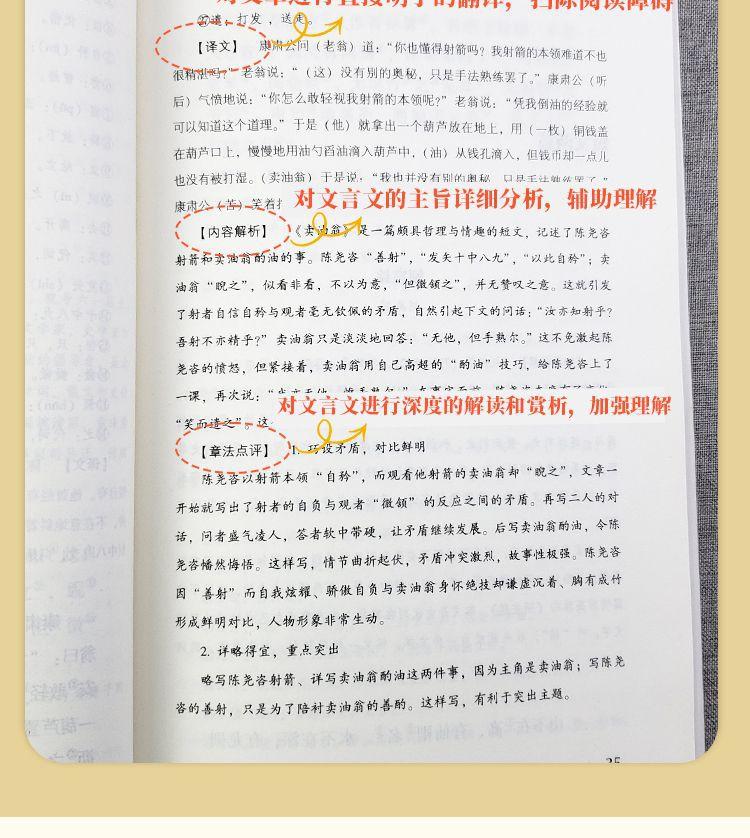 ㉗遣：打发，送走。
【译文】 康肃公问（老翁）道：“你也懂得射箭吗？我射箭的本领难道不也
很精湛吗？”老翁说：“（这）没有别的奥秘，只是手法熟练罢了。”康肃公（听
后）气愤地说：“你怎么敢轻视我射箭的本领呢？”老翁说：“凭我倒油的经验就
可以知道这个道理。”于是（他）就拿出一个葫芦放在地上，用（一枚）铜钱盖
在葫芦口上，慢慢地用油勺舀油滴入葫芦中，（油）从钱孔滴入，但钱币却一点儿
也没有被打湿。（卖油翁）于是说：“我也并没有别的奥秘，只是手法熟练罢了。”
康肃公（苦）笑着
对文言文的主旨详细分析，辅助理解
【内容解析】 《卖油翁》是一篇颇具哲理与情趣的短文，记述了陈尧咨
射箭和卖油翁酌油的事。陈尧咨“善射”，“发矢十中八九”，“以此自矜”；卖
油翁“睨之”，似看非看，不以为意，“但微颔之”，并无赞叹之意。这就引发
了射者自信自矜与观者毫无钦佩的矛盾，自然引起下文的问话：“汝亦知射乎？
吾射不亦精乎？”卖油翁只是淡淡地回答：“无他，但手熟尔。”这不免激起陈
尧咨的愤怒，但紧接着，卖油翁用自己高超的“酌油”技巧，给陈尧咨上了
一课，再次说：
“笑而遣之”。这
对文言文进行深度的解读和赏析，加强理解
【章法点评】 1. 巧设矛盾，对比鲜明
陈尧咨以射箭本领“自矜”，而观看他射箭的卖油翁却“睨之”，文章一
开始就写出了射者的自负与观者“微颔”的反应之间的矛盾。再写二人的对
话，问者盛气凌人，答者软中带硬，让矛盾继续发展。后写卖油翁酌油，令陈
尧咨幡然悔悟。这样写，情节曲折起伏，矛盾冲突激烈，故事性极强。陈尧咨
因“善射”而自我炫耀、骄傲自负与卖油翁身怀绝技却谦虚沉着、胸有成竹
形成鲜明对比，人物形象非常生动。
2. 详略得宜，重点突出
略写陈尧咨射箭、详写卖油翁酌油这两件事，因为主角是卖油翁；写陈尧
咨的善射，只是为了陪衬卖油翁的善酌。这样写，有利于突出主题。